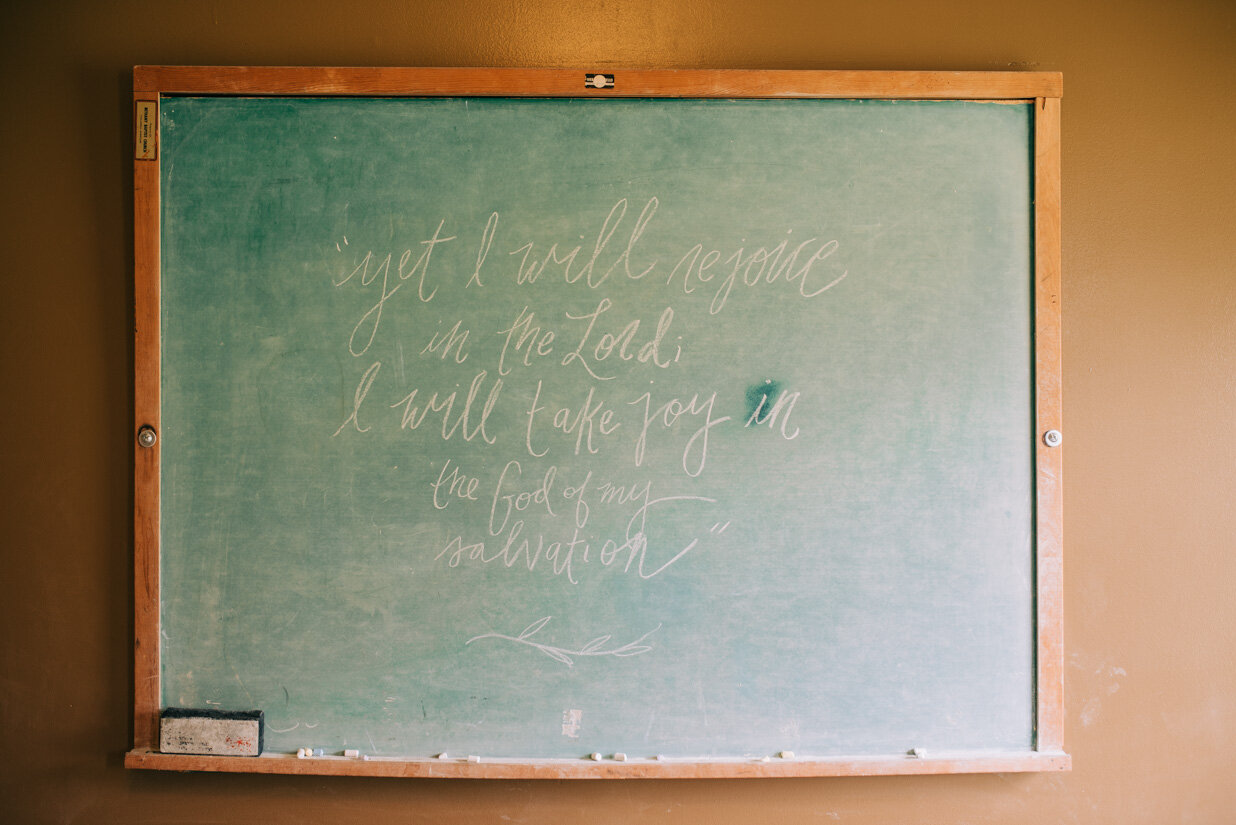 "yet I will rejoice
in the Lord;
I will take joy in
the God of my
salvation"